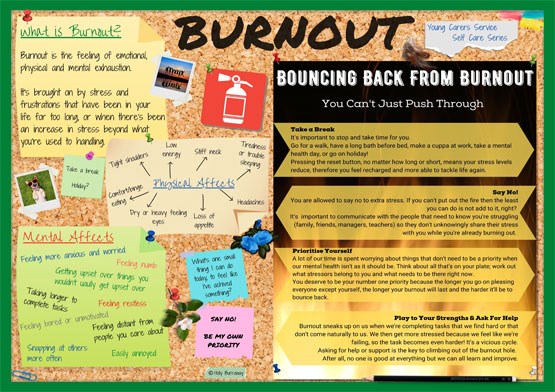 BURNOUT
Young Carers Service
Self Care Series
What is Burnout?
Burnout is the feeling of emotional,
physical and mental exhaustion.
It's brought on by stress and
frustrations that have been in your
life for too long, or when there's been
an increase in stress beyond what
you're used to handling.
Take a break
Holiday?
Physical Affects
Tight shoulders
Low
energy
Stiff neck
Tiredness
or trouble
sleeping
Comfort/binge
eating
Dry or heavy feeling
eyes
Loss of
appetite
Headaches
Mental Affects
Feeling more anxious and worried
Feeling numb
Getting upset over things you
wouldn't usually get upset over
Taking longer to
complete tasks
Feeling restless
Feeling bored or unmotivated
Feeling distant from
people you care about
Snapping at others
more often
Easily annoyed
What's one small
thing I can do
today to feel like
I've achieved
something?
SAY NO!
BE MY OWN
PRIORITY
BOUNCING BACK FROM BURNOUT
You Can't Just Push Through
Take a Break
It's important to stop and take time for you.
Go for a walk, have a long bath before bed, make a cuppa at work, take a mental
health day, or go on holiday!
Pressing the reset button, no matter how long or short, means your stress levels
reduce, therefore you feel recharged and more able to tackle life again.
Say No!
You are allowed to say no to extra stress. If you can't put out the fire then the least
you can do is not add to it, right?
It's important to communicate with the people that need to know you're struggling
(family, friends, managers, teachers) so they don't unknowingly share their stress
with you while you're already burning out.
Prioritise Yourself
A lot of our time is spent worrying about things that don't need to be a priority when
our mental health isn't as it should be. Think about all that's on your plate; work out
what stressors belong to you and what needs to be there right now.
You deserve to be your number one priority because the longer you go on pleasing
everyone except yourself, the longer your burnout will last and the harder it'll be to
bounce back.
Play to Your Strengths & Ask For Help
Burnout sneaks up on us when we're completing tasks that we find hard or that
don't come naturally to us. We then get more stressed because we feel like we're
failing, so the task becomes even harder! It's a vicious cycle.
Asking for help or support is the key to climbing out of the burnout hole.
After all, no one is good at everything but we can all learn and improve.